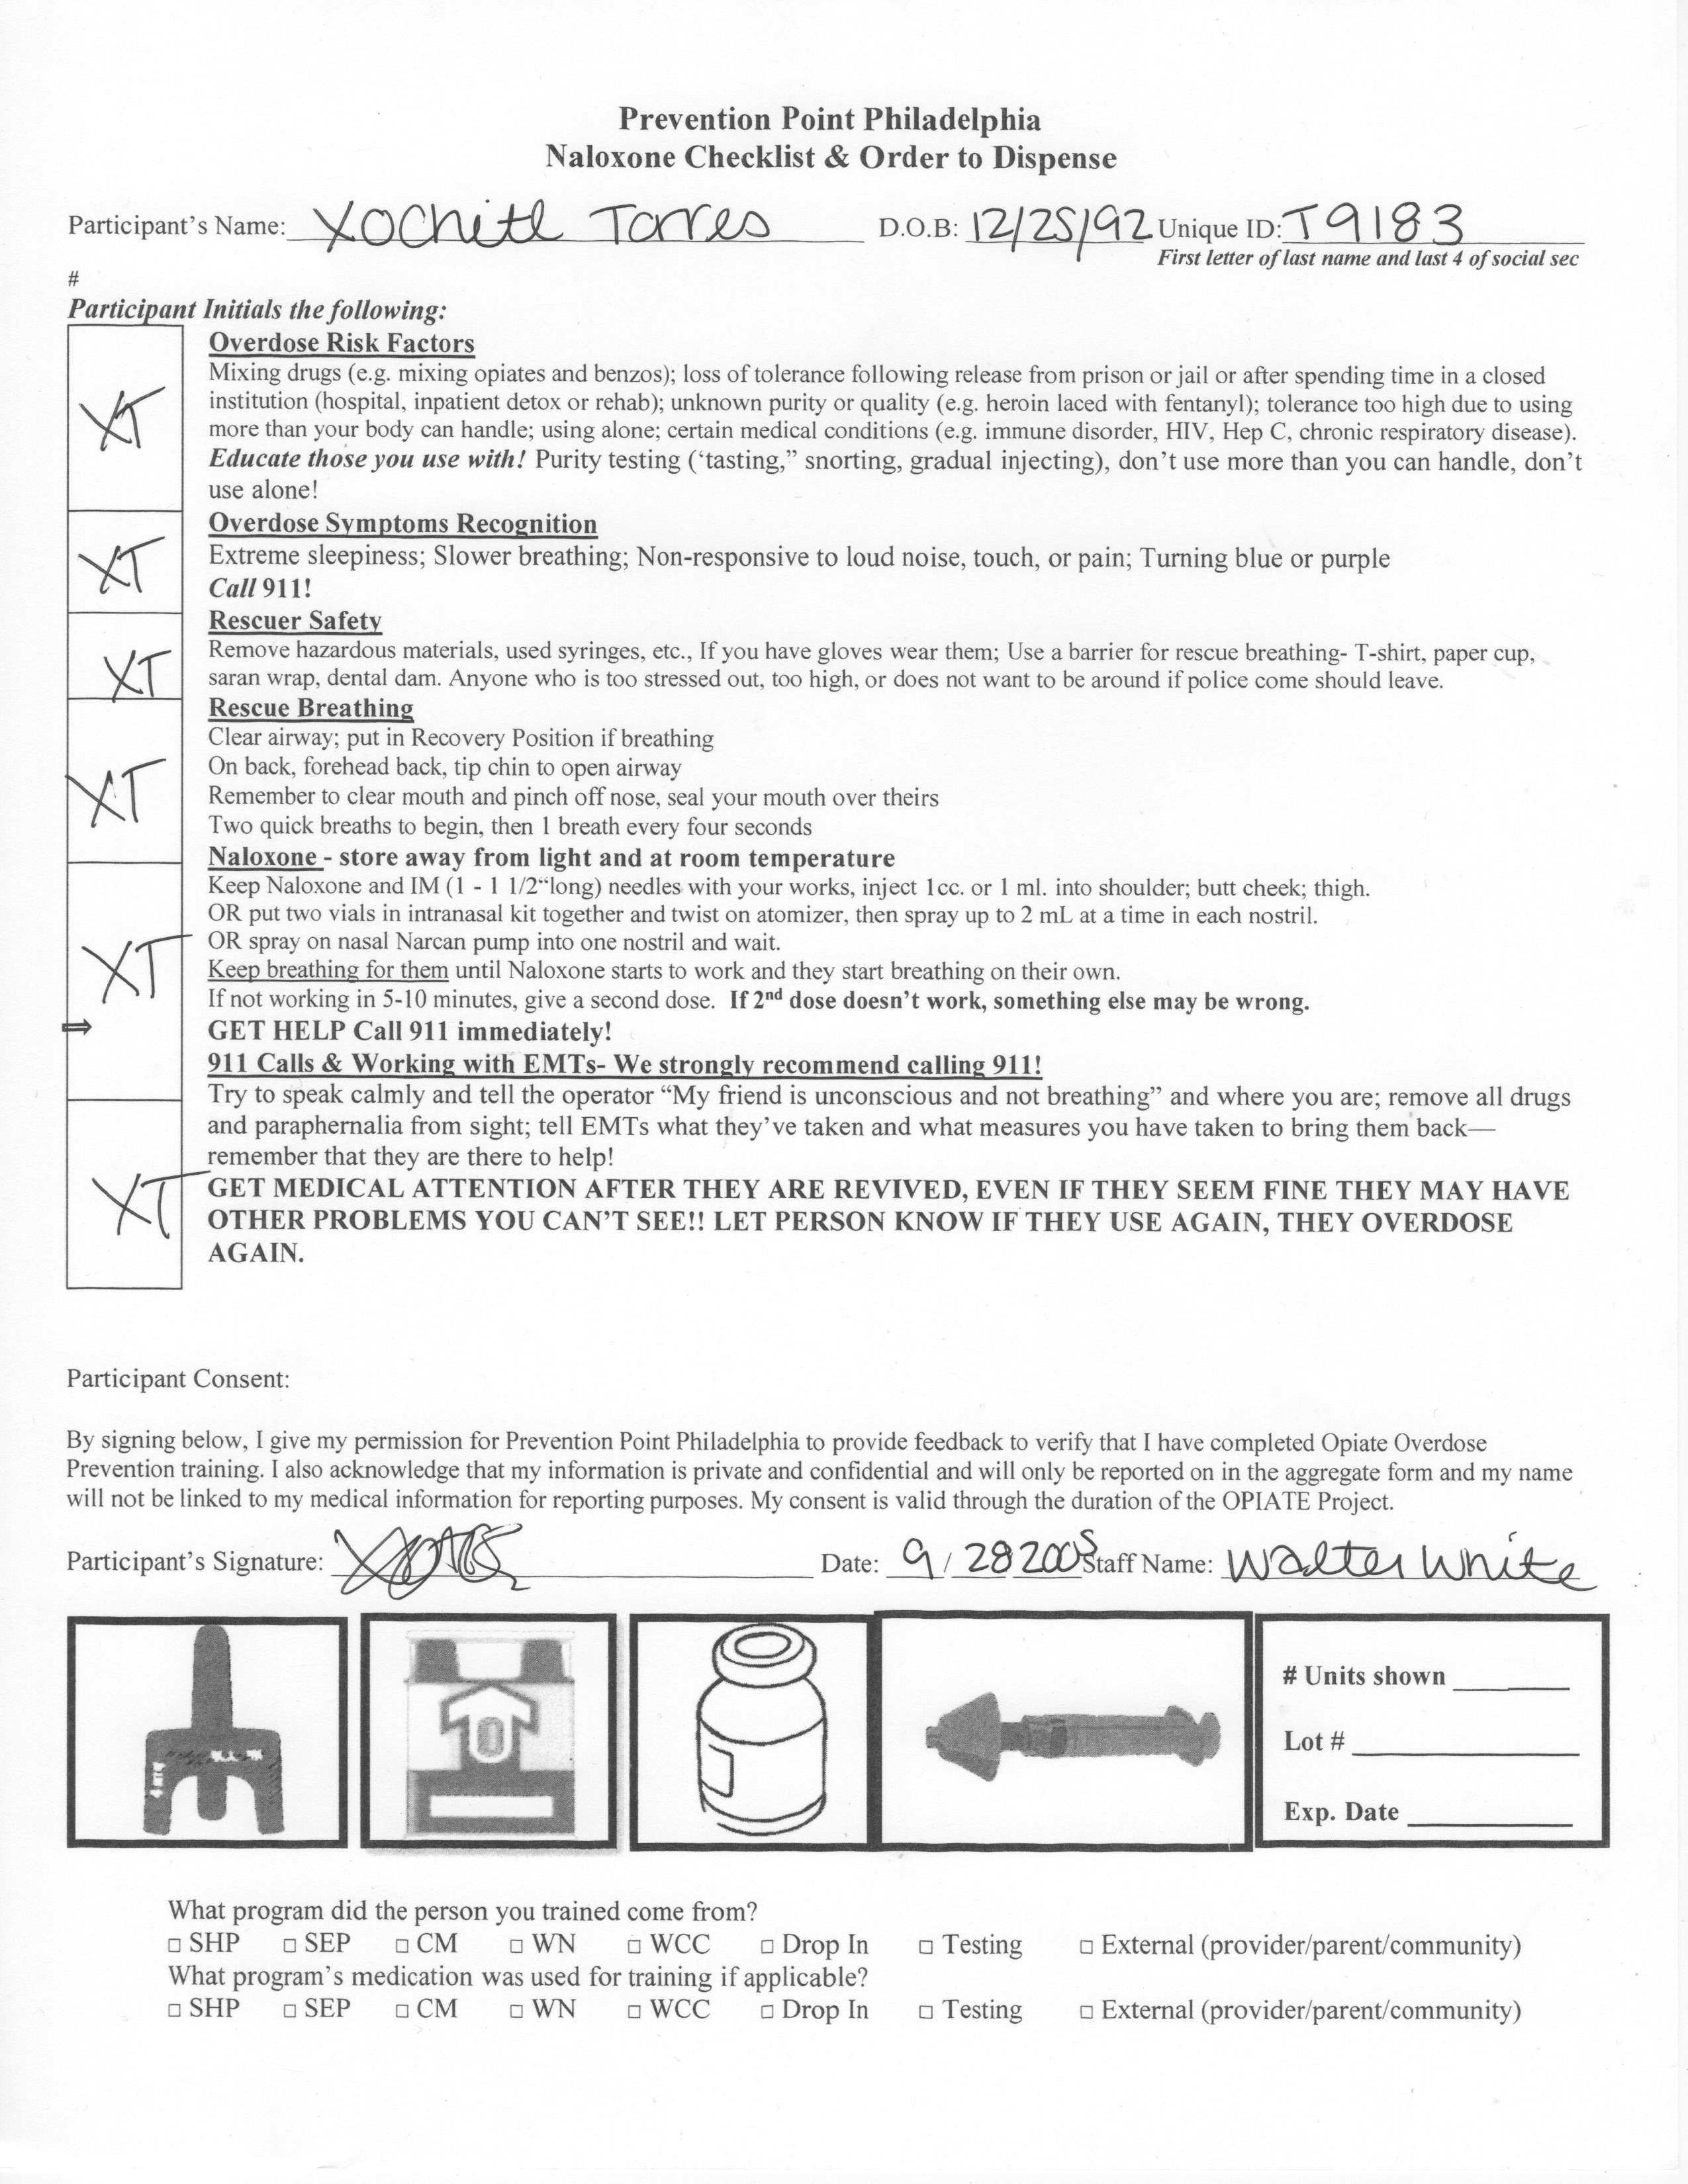 Prevention Point Philadelphia
Naloxone Checklist & Order to Dispense
Participant's Name: Xochitl Torres D.O.B: 12/25/92 Unique ID: T9183
First letter of last name and last 4 of social sec
#
Participant Initials the following:
Overdose Risk Factors
Mixing drugs (e.g. mixing opiates and benzos); loss of tolerance following release from prison or jail or after spending time in a closed
institution (hospital, inpatient detox or rehab); unknown purity or quality (e.g. heroin laced with fentanyl); tolerance too high due to using
XT more than your body can handle; using alone; certain medical conditions (e.g. immune disorder, HIV, Hep C, chronic respiratory disease).
Educate those you use with! Purity testing ('tasting," snorting, gradual injecting), don't use more than you can handle, don't
use alone!
Overdose Symptoms Recognition
XT Extreme sleepiness; Slower breathing; Non-responsive to loud noise, touch, or pain; Turning blue or purple
Call 911!
Rescuer Safety
Remove hazardous materials, used syringes, etc., If you have gloves wear them; Use a barrier for rescue breathing- T-shirt, paper cup,
XT saran wrap, dental dam. Anyone who is too stressed out, too high, or does not want to be around if police come should leave.
Rescue Breathing
Clear airway; put in Recovery Position if breathing
On back, forehead back, tip chin to open airway
XT Remember to clear mouth and pinch off nose, seal your mouth over theirs
Two quick breaths to begin, then 1 breath every four seconds
Naloxone - store away from light and at room temperature
Keep Naloxone and IM (1 - 1 1/2“long) needles with your works, inject 1cc. or 1 ml. into shoulder; butt cheek; thigh.
OR put two vials in intranasal kit together and twist on atomizer, then spray up to 2 mL at a time in each nostril.
OR spray on nasal Narcan pump into one nostril and wait.
XT Keep breathing for them until Naloxone starts to work and they start breathing on their own.
If not working in 5-10 minutes, give a second dose. If 2nd dose doesn't work, something else may be wrong.
⇒ GET HELP Call 911 immediately!
911 Calls & Working with EMTs- We strongly recommend calling 911!
Try to speak calmly and tell the operator “My friend is unconscious and not breathing” and where you are; remove all drugs
and paraphernalia from sight; tell EMTs what they've taken and what measures you have taken to bring them back—
remember that they are there to help!
XT GET MEDICAL ATTENTION AFTER THEY ARE REVIVED, EVEN IF THEY SEEM FINE THEY MAY HAVE
OTHER PROBLEMS YOU CAN'T SEE!! LET PERSON KNOW IF THEY USE AGAIN, THEY OVERDOSE
AGAIN.
Participant Consent:
By signing below, I give my permission for Prevention Point Philadelphia to provide feedback to verify that I have completed Opiate Overdose
Prevention training. I also acknowledge that my information is private and confidential and will only be reported on in the aggregate form and my name
will not be linked to my medical information for reporting purposes. My consent is valid through the duration of the OPIATE Project.
Participant's Signature: Date: 9/28 2005 Staff Name: Walter White
# Units shown
Lot #
Exp. Date
What program did the person you trained come from?
□ SHP □ SEP □ CM □ WN □ WCC □ Drop In □ Testing □ External (provider/parent/community)
What program's medication was used for training if applicable?
□ SHP □ SEP □ CM □ WN □ WCC □ Drop In □ Testing □ External (provider/parent/community)